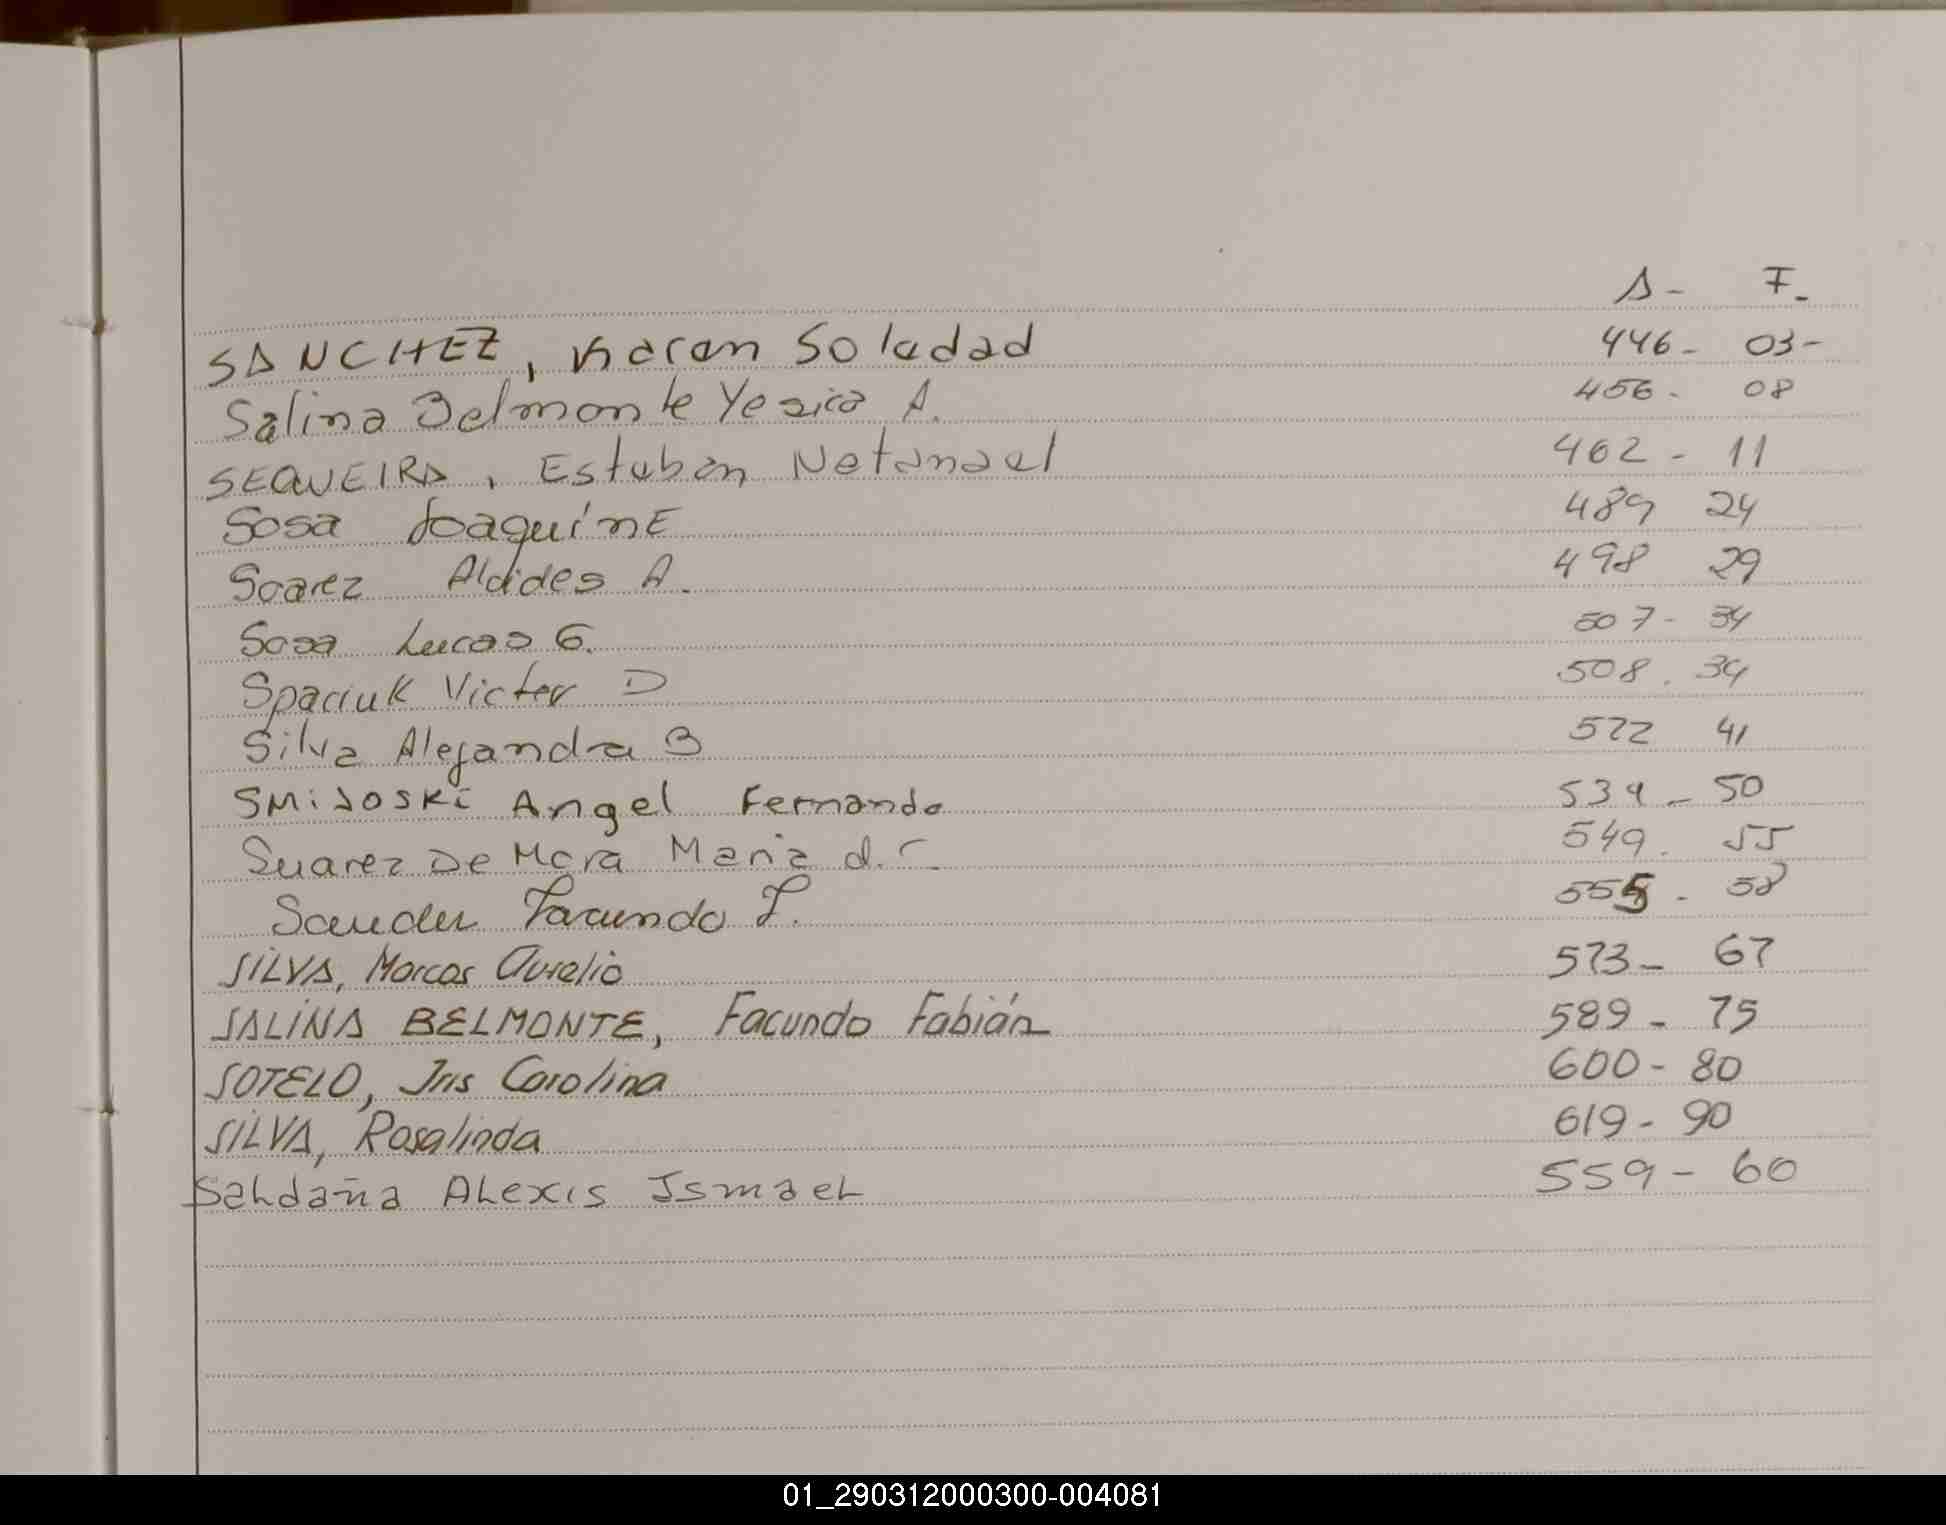 A- F-
SANCHEZ, Karen Soledad 446- 03-
Salina Belmonte Yesica A. 456- 08
SEQUEIRA, Esteban Netanael 462- 11
Sosa Joaquin E 489 24
Soarez Alcides A. 498 29
Sosa Lucas G. 507- 34
Spaciuk Victor D 508. 34
Silva Alejandra B 522 41
SMiJOSKi Angel Fernando 539- 50
Suarez De Mora Maria d. C. 549. 55
Facundo 555- 58
SiLVA, Marcos Aurelio 573- 67
SALiNA BELMONTE, Facundo Fabián 589- 75
SOTELO, Iris Carolina 600- 80
SiLVA, Rosalinda 619- 90
Saldaña ALexis Ismael 559- 60
01_290312000300-004081